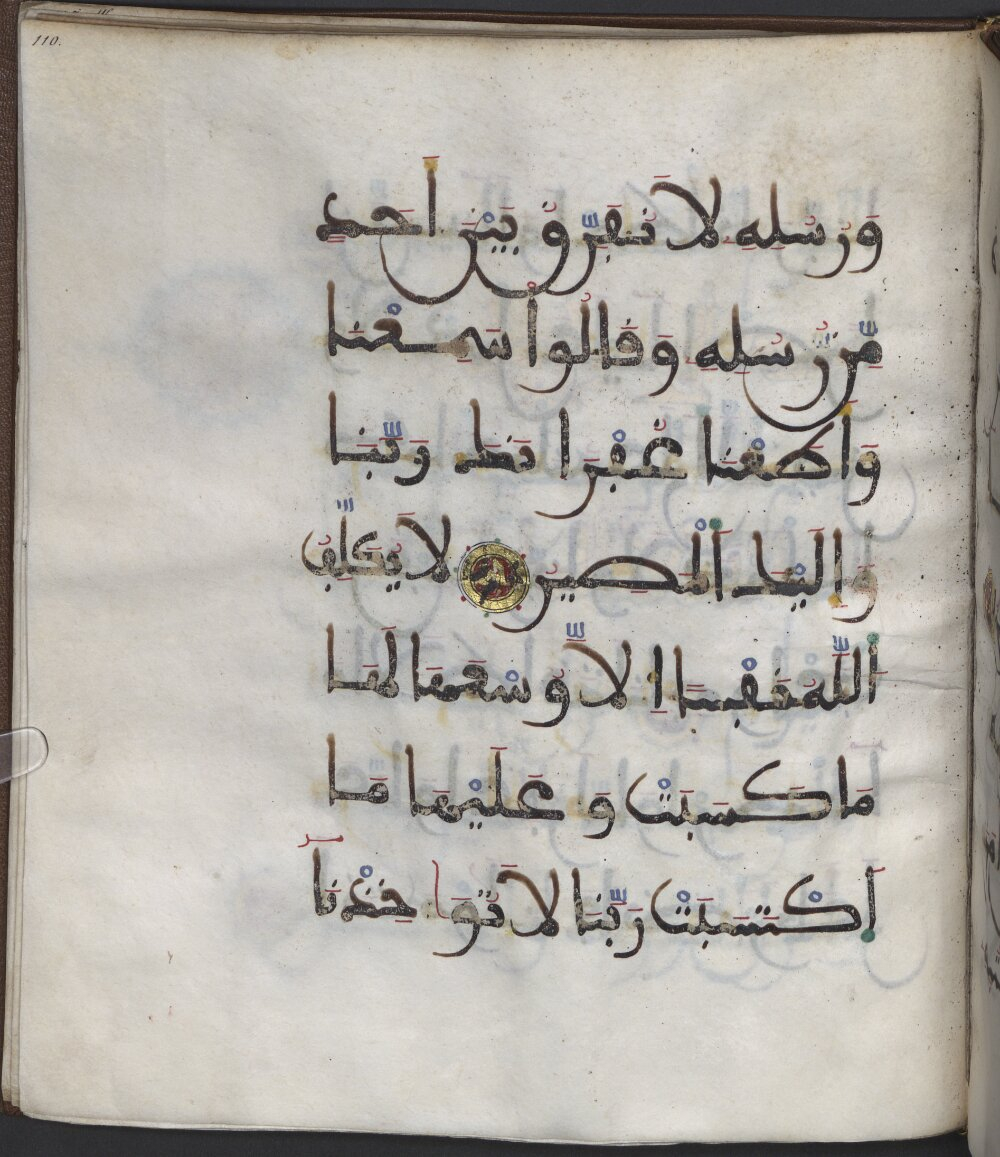 110.
وَرُسُلِهِ لَا نُفَرِّقُ بَيْنَ أَحَدٍ
مِّن رُّسُلِهِ وَقَالُواْ سَمِعْنَا
وَأَطَعْنَا غُفْرَانَكَ رَبَّنَا
وَإِلَيْكَ ٱلْمَصِيرُ لَا يُكَلِّفُ
ٱللَّهُ نَفْسًا إِلَّا وُسْعَهَا لَهَا
مَا كَسَبَتْ وَعَلَيْهَا مَا
ٱكْتَسَبَتْ رَبَّنَا لَا تُوَاخِذْنَآ